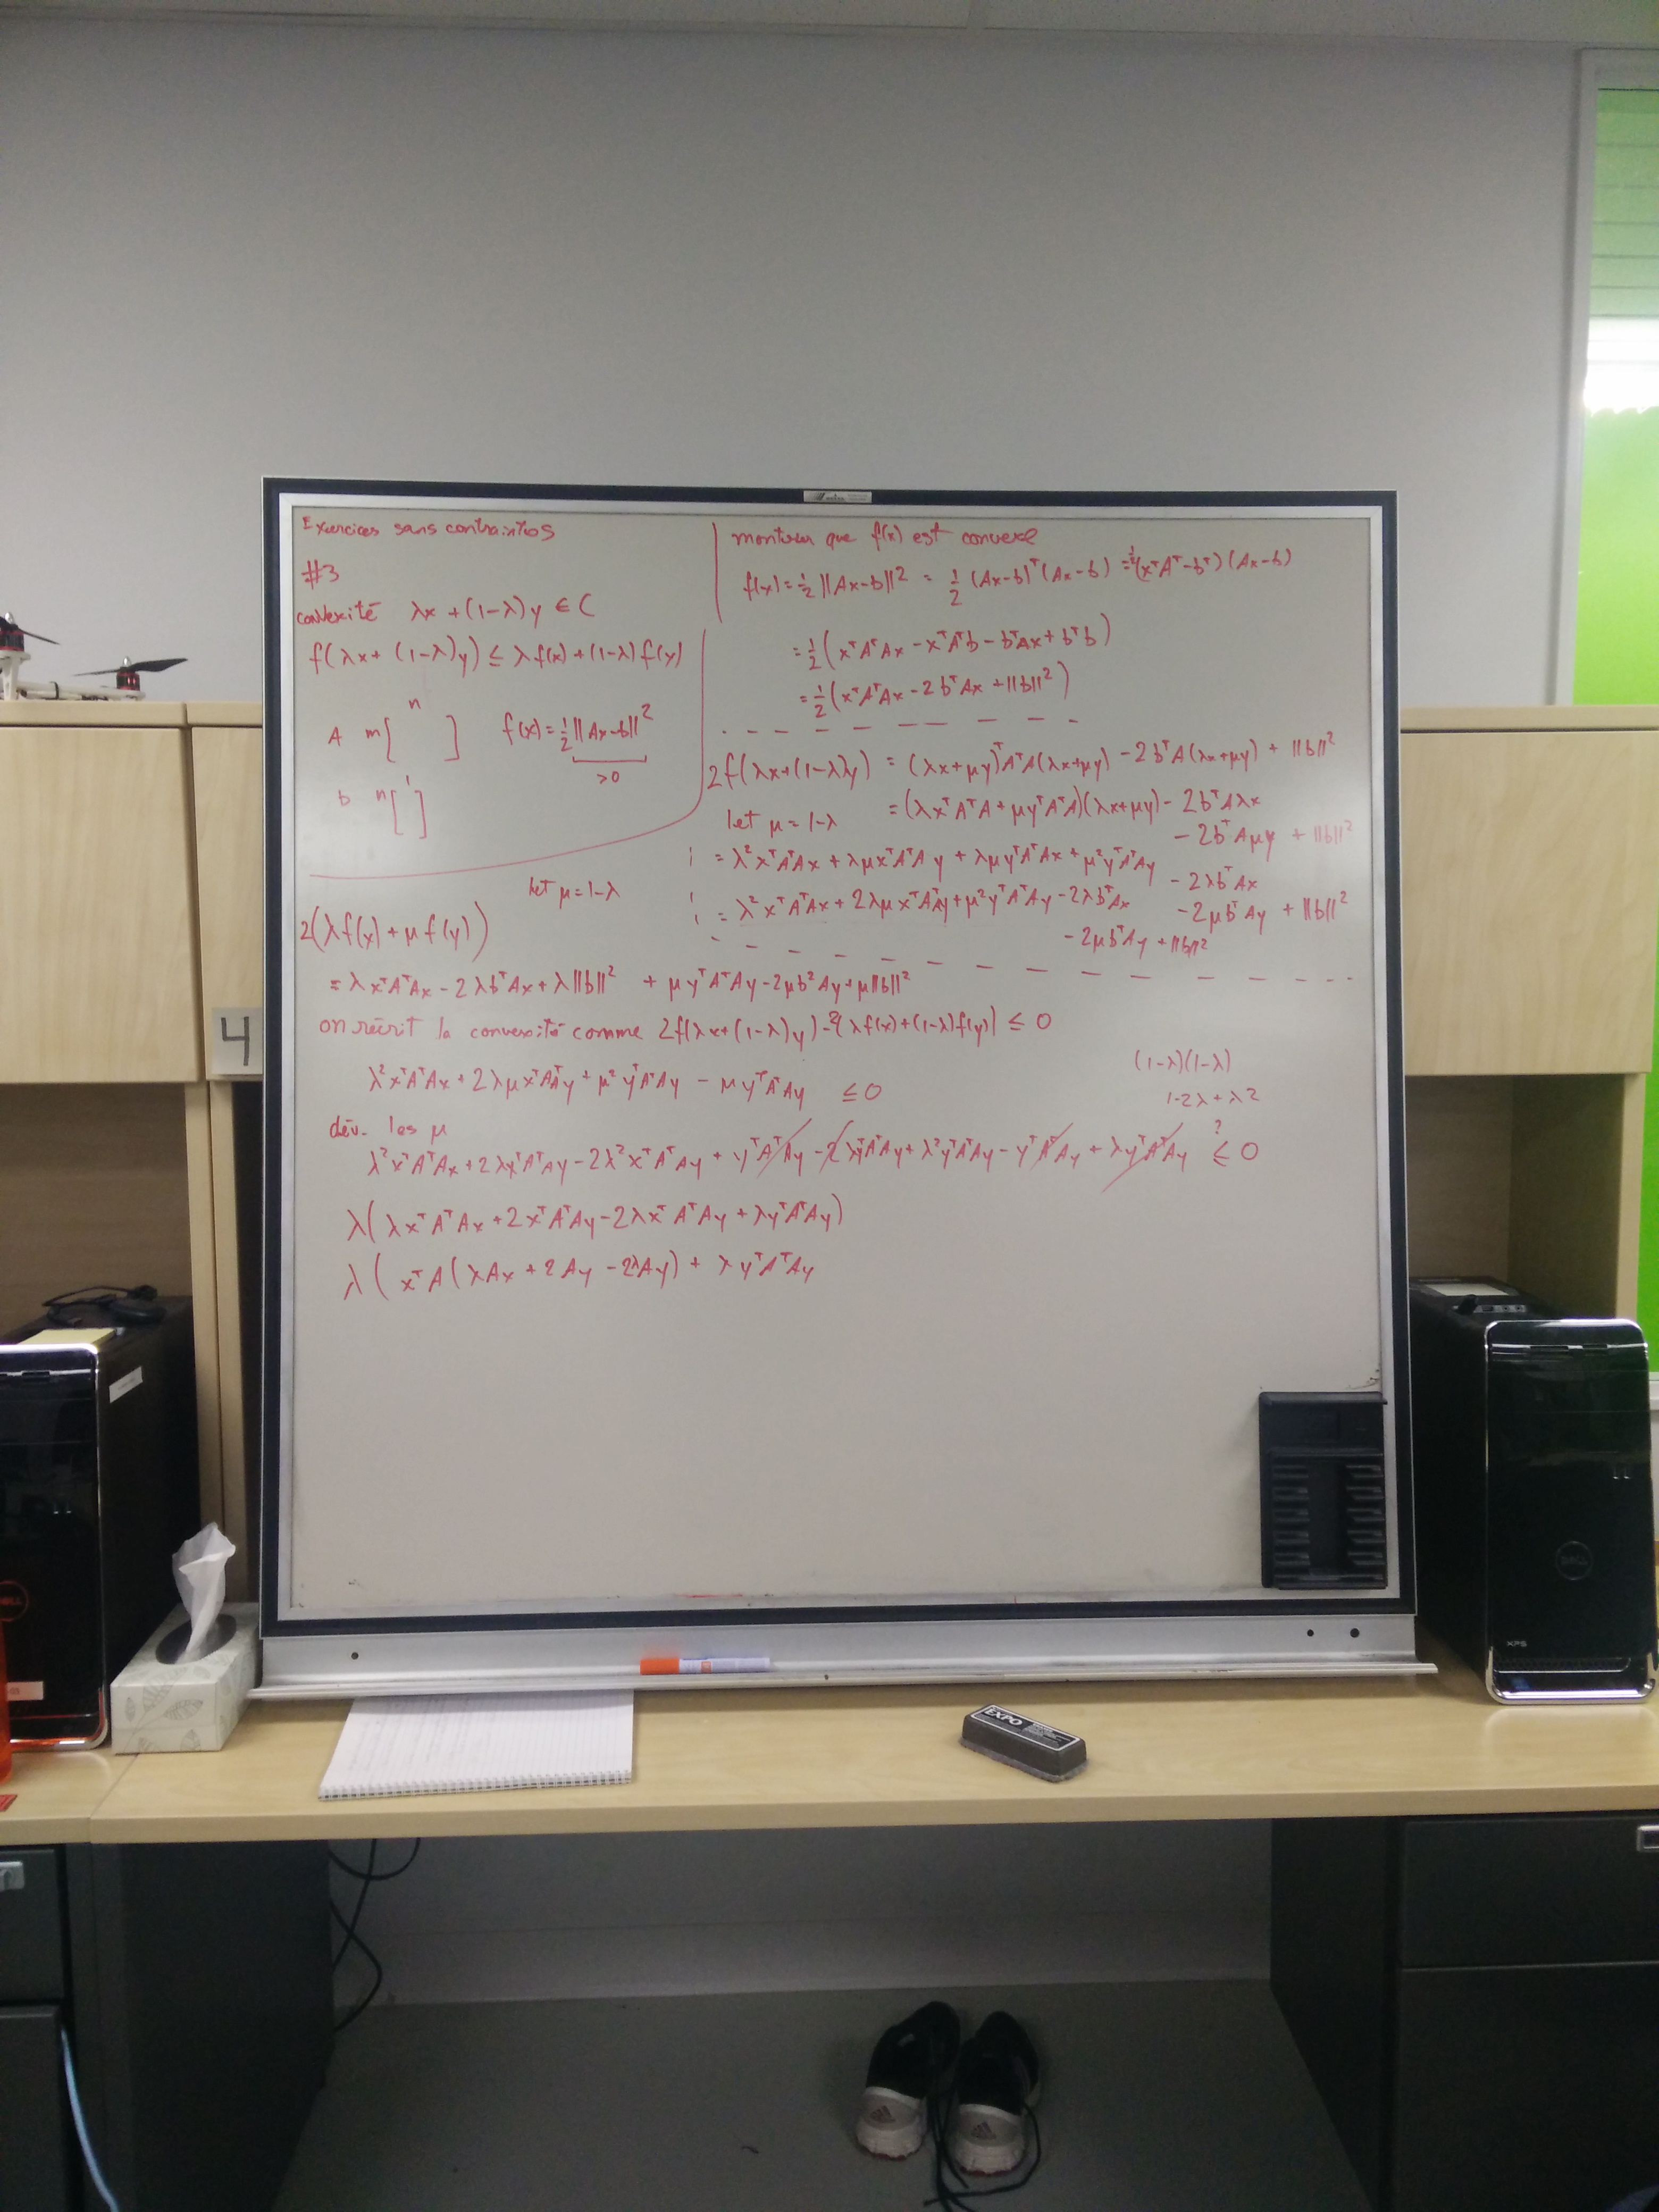 Exercices sans contraintes
#3
convexité λx + (1-λ)y ∈ C
f(λx + (1-λ)y) ≤ λf(x) + (1-λ)f(y)
n
A m[ ] f(x) = ½||Ax-b||²
>0
1
b n[ ]
montrer que f(x) est convexe
f(x) = ½||Ax-b||² = ½(Ax-b)ᵀ(Ax-b) = ½(xᵀAᵀ-bᵀ)(Ax-b)
= ½(xᵀAᵀAx - xᵀAᵀb - bᵀAx + bᵀb)
= ½(xᵀAᵀAx - 2bᵀAx + ||b||²)
2f(λx+(1-λ)y) = (λx+μy)ᵀAᵀA(λx+μy) - 2bᵀA(λx+μy) + ||b||²
let μ = 1-λ = (λxᵀAᵀA + μyᵀAᵀA)(λx+μy) - 2bᵀAλx
- 2bᵀAμy + ||b||²
= λ²xᵀAᵀAx + λμxᵀAᵀAy + λμyᵀAᵀAx + μ²yᵀAᵀAy - 2λbᵀAx
- 2μbᵀAy + ||b||²
= λ²xᵀAᵀAx + 2λμxᵀAᵀAy + μ²yᵀAᵀAy - 2λbᵀAx
- 2μbᵀAy + ||b||²
let μ = 1-λ
2(λf(x) + μf(y))
= λxᵀAᵀAx - 2λbᵀAx + λ||b||² + μyᵀAᵀAy - 2μb²Ay + μ||b||²
on réécrit la convexité comme 2f(λx+(1-λ)y) - 2(λf(x)+(1-λ)f(y)) ≤ 0
λ²xᵀAᵀAx + 2λμxᵀAᵀAy + μ²yᵀAᵀAy - μyᵀAᵀAy ≤ 0
(1-λ)(1-λ)
1-2λ+λ2
dév. les μ
λ²xᵀAᵀAx + 2λxᵀAᵀAy - 2λ²xᵀAᵀAy + yᵀAᵀAy - 2λyᵀAᵀAy + λ²yᵀAᵀAy - yᵀAᵀAy + λyᵀAᵀAy ≤ 0
?
λ(λxᵀAᵀAx + 2xᵀAᵀAy - 2λxᵀAᵀAy + λyᵀAᵀAy)
λ(xᵀA(λAx + 2Ay - 2λAy) + λyᵀAᵀAy
4
EXPO
DELL
XPS